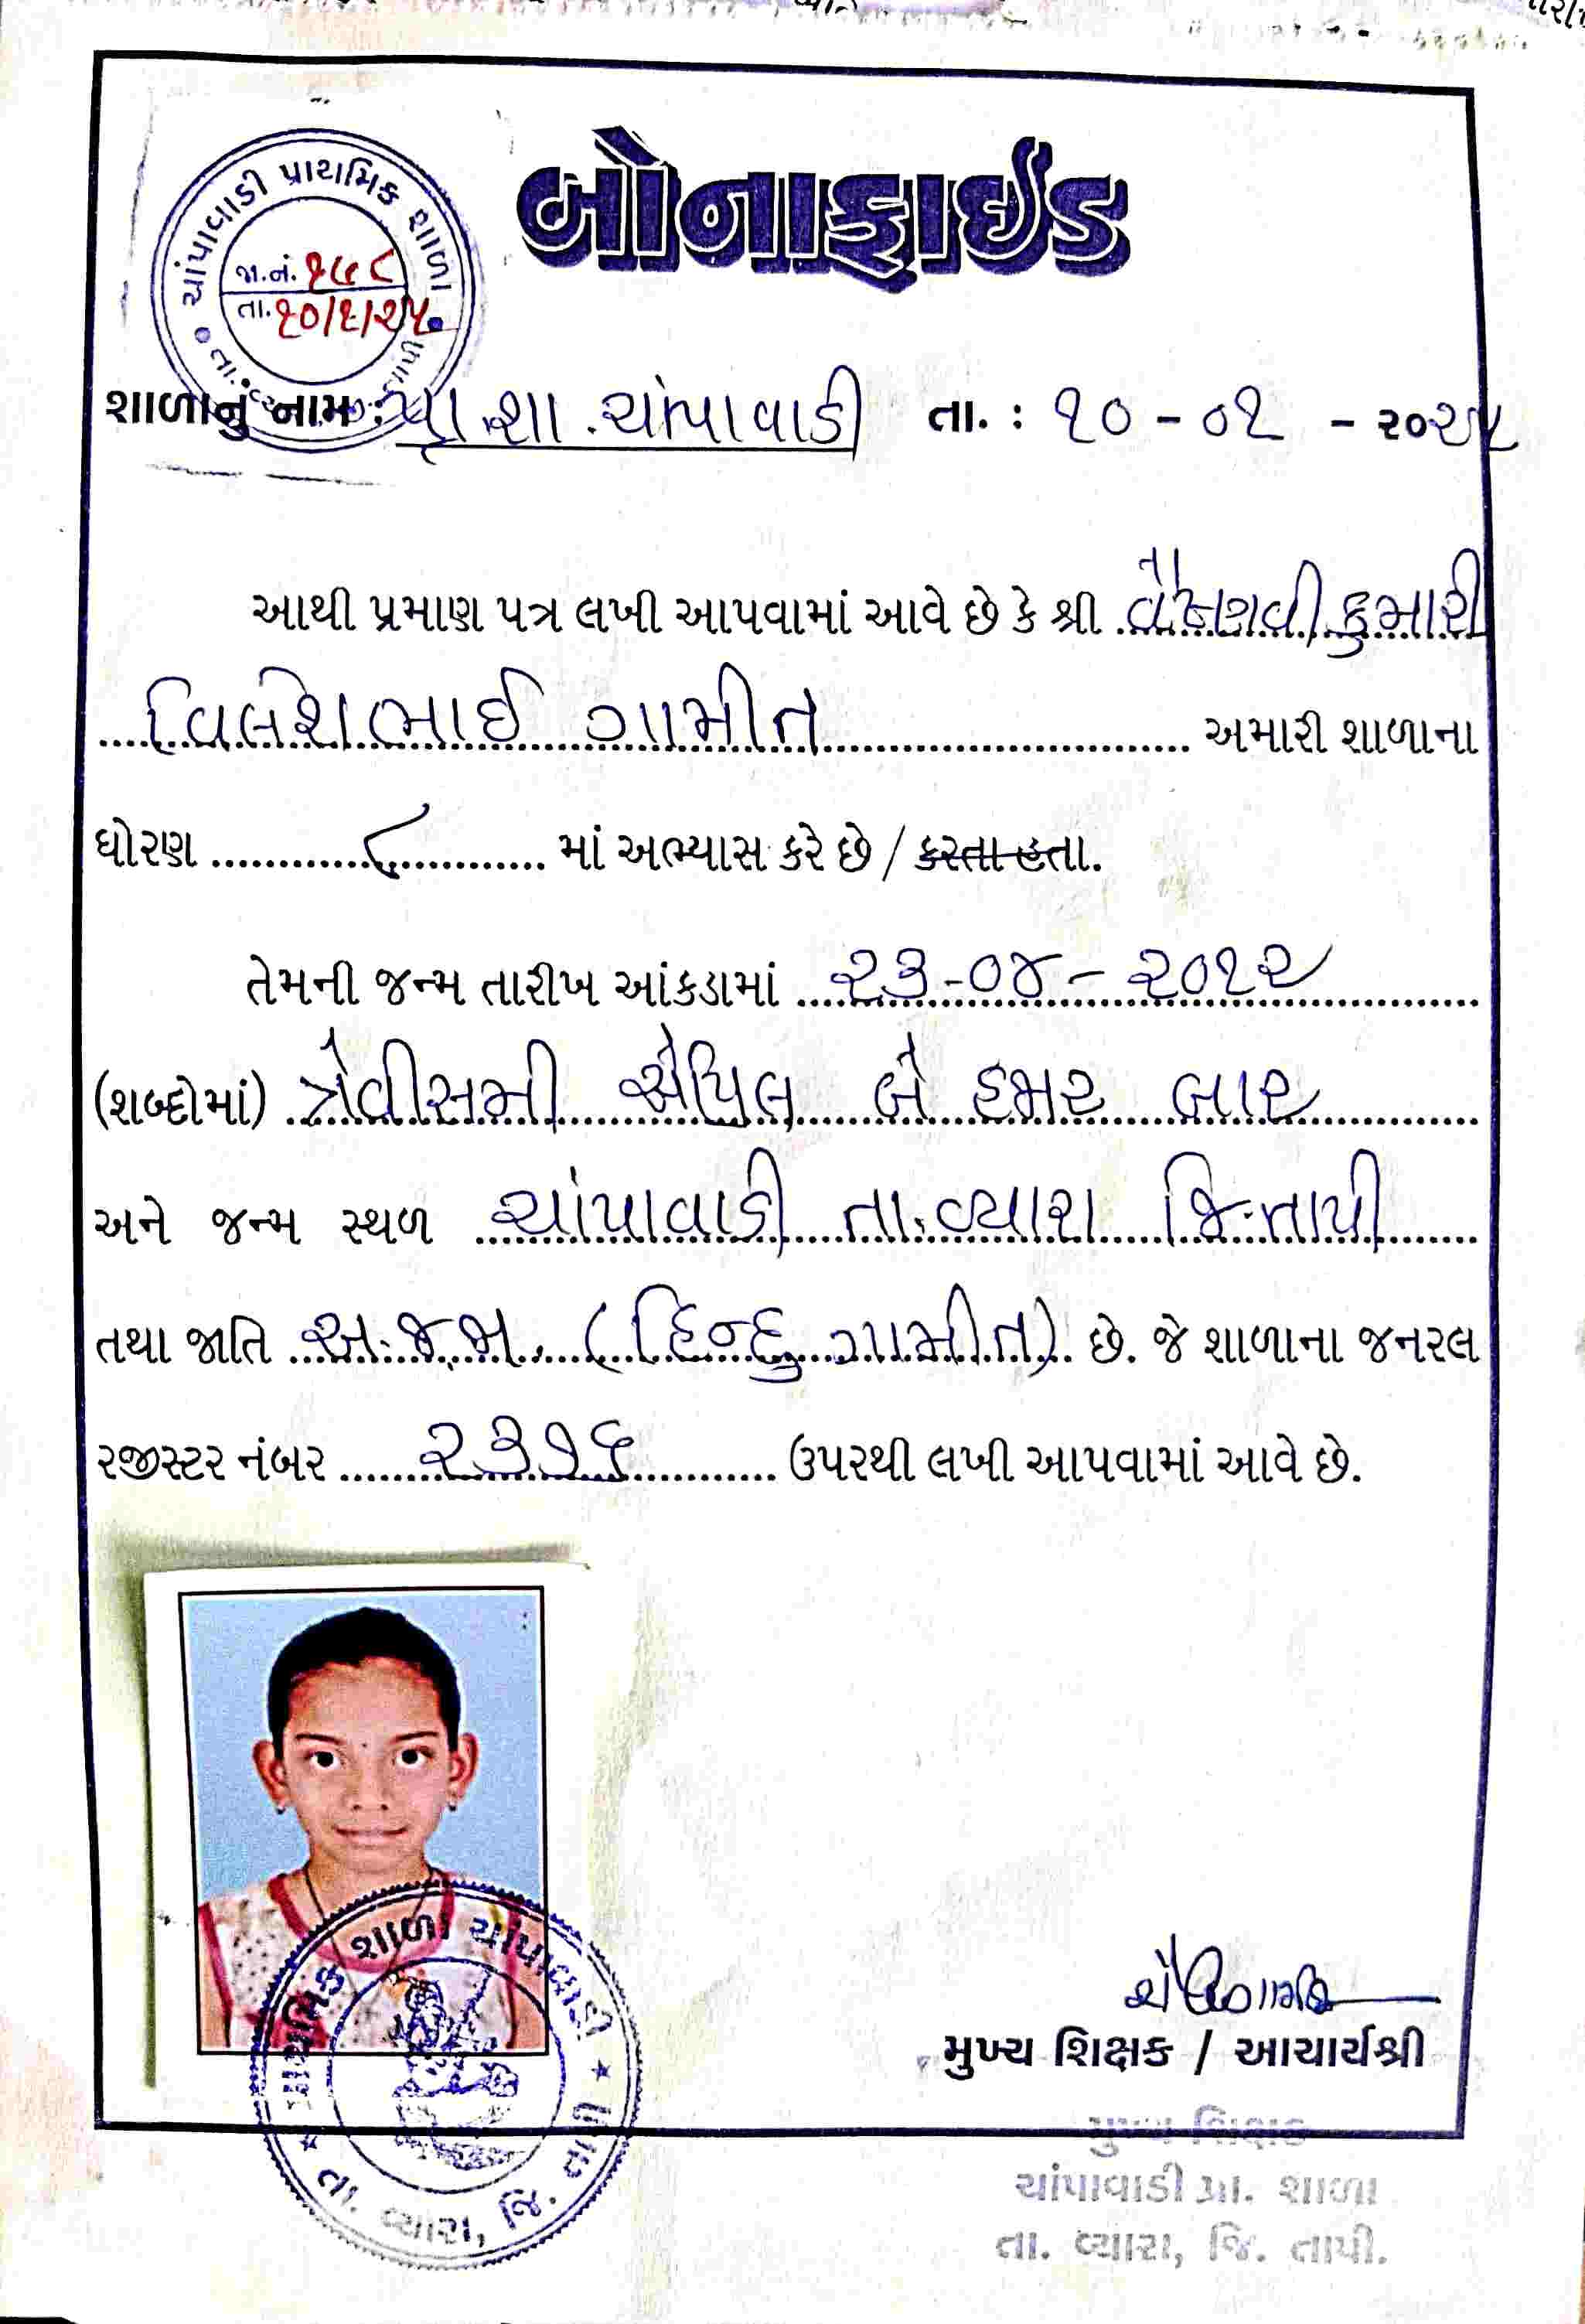 બોનાફાઈડ
ચાંપાવાડી પ્રાથમિક શાળા
જા.નં. ૧૫૮
તા. ૧૦/૧/૨૫
શાળાનું નામ : પ્રા.શા. ચાંપાવાડી તા. : ૧૦ - ૦૧ - ૨૦૨૫
આથી પ્રમાણ પત્ર લખી આપવામાં આવે છે કે શ્રી વૈષ્ણવીકુમારી
વિલેશભાઈ ગામીત અમારી શાળાના
ધોરણ ૮ માં અભ્યાસ કરે છે / કરતા હતા.
તેમની જન્મ તારીખ આંકડામાં ૨૩-૦૪-૨૦૧૨
(શબ્દોમાં) ત્રેવીસમી એપ્રિલ બે હજાર બાર
અને જન્મ સ્થળ ચાંપાવાડી તા.વ્યારા જિ.તાપી
તથા જાતિ અ.જ.જા. (હિન્દુ ગામીત) છે. જે શાળાના જનરલ
રજીસ્ટર નંબર ૨૩૧૬ ઉપરથી લખી આપવામાં આવે છે.
પ્રાથમિક શાળા ચાંપાવાડી
તા. વ્યારા, જિ. તાપી
મુખ્ય શિક્ષક / આચાર્યશ્રી
મુખ્ય શિક્ષક
ચાંપાવાડી પ્રા. શાળા
તા. વ્યારા, જિ. તાપી.